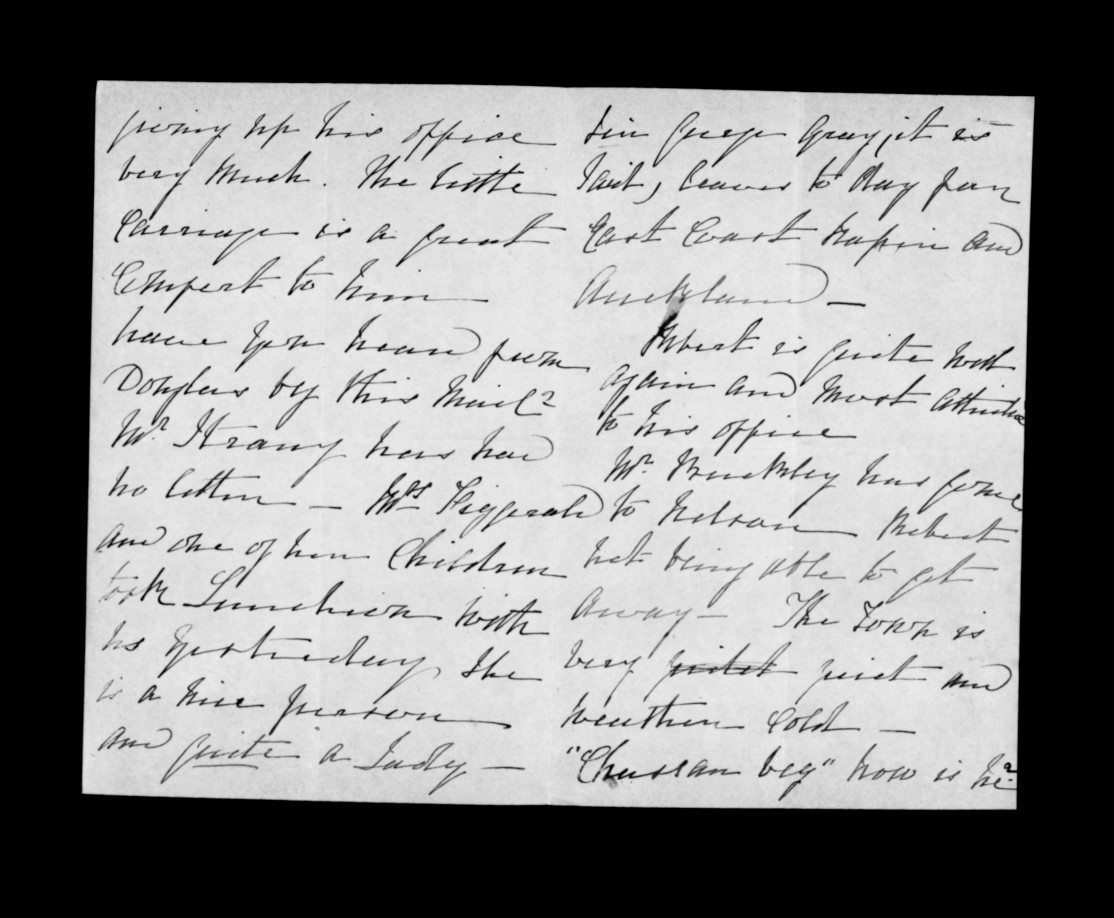 giving up his office
very much. The little
Carriage is a great
Comfort to him —
have you heard from
Douglas by this Mail?
Mr. Strang has had
no letter — Mrs Fitzgerald
and one of her Children
took Luncheon with
us yesterday, She
is a nice person
and quite a Lady —
Sir George Grey, it is
said, leaves to day for
East Coast Napier and
Auckland —
Robert is quite well
again and most attentive
to his office
Mr. Bunkley has gone
to Nelson Robert
not being able to get
away — The Town is
very quiet and
weather Cold —
how is he?